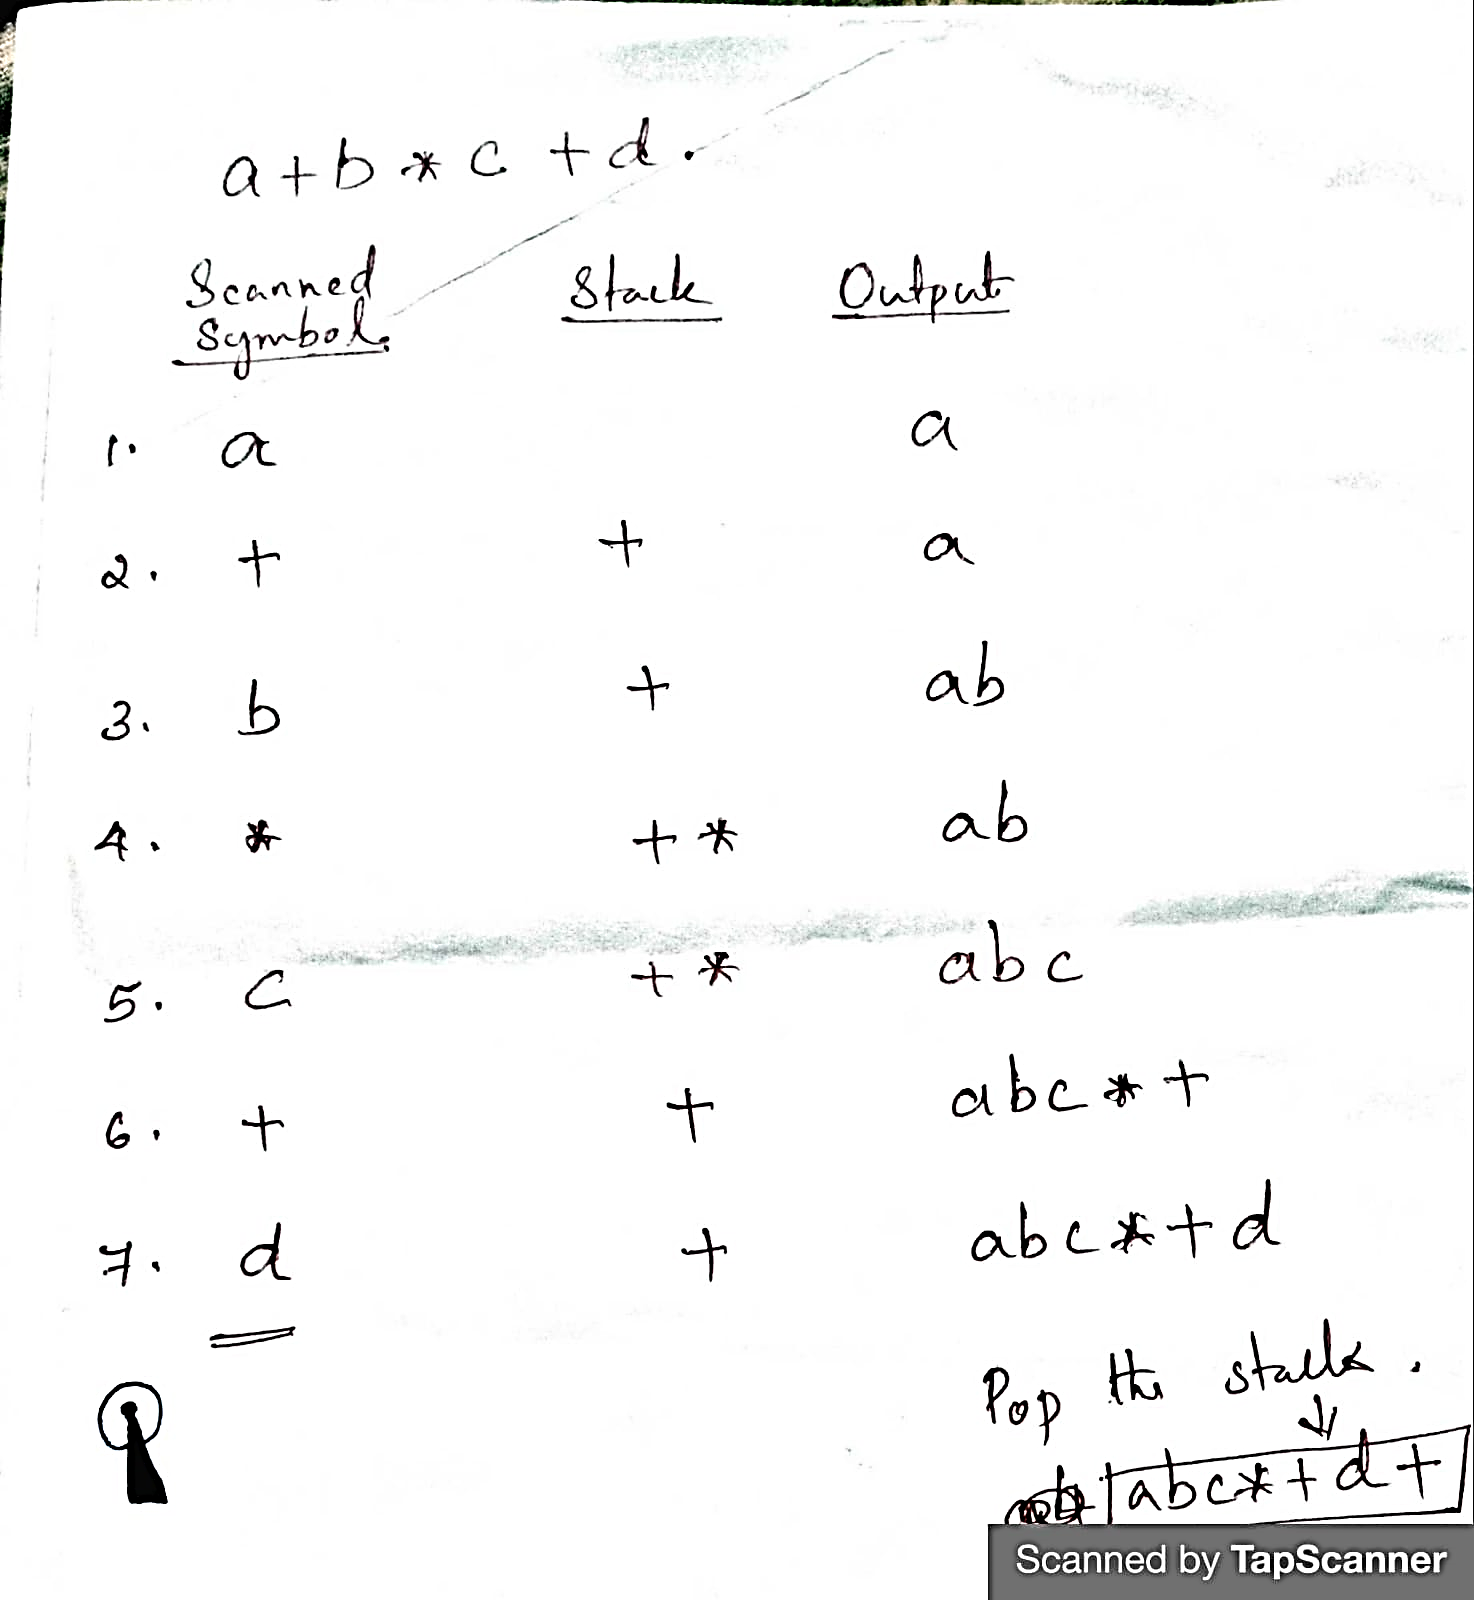 a + b * c + d.
Scanned Symbol. Stack Output
1. a a
2. + + a
3. b + ab
4. * + * ab
5. c + * abc
6. + + abc * +
7. d + abc * + d
Pop the stack.
abc * + d +
Scanned by TapScanner